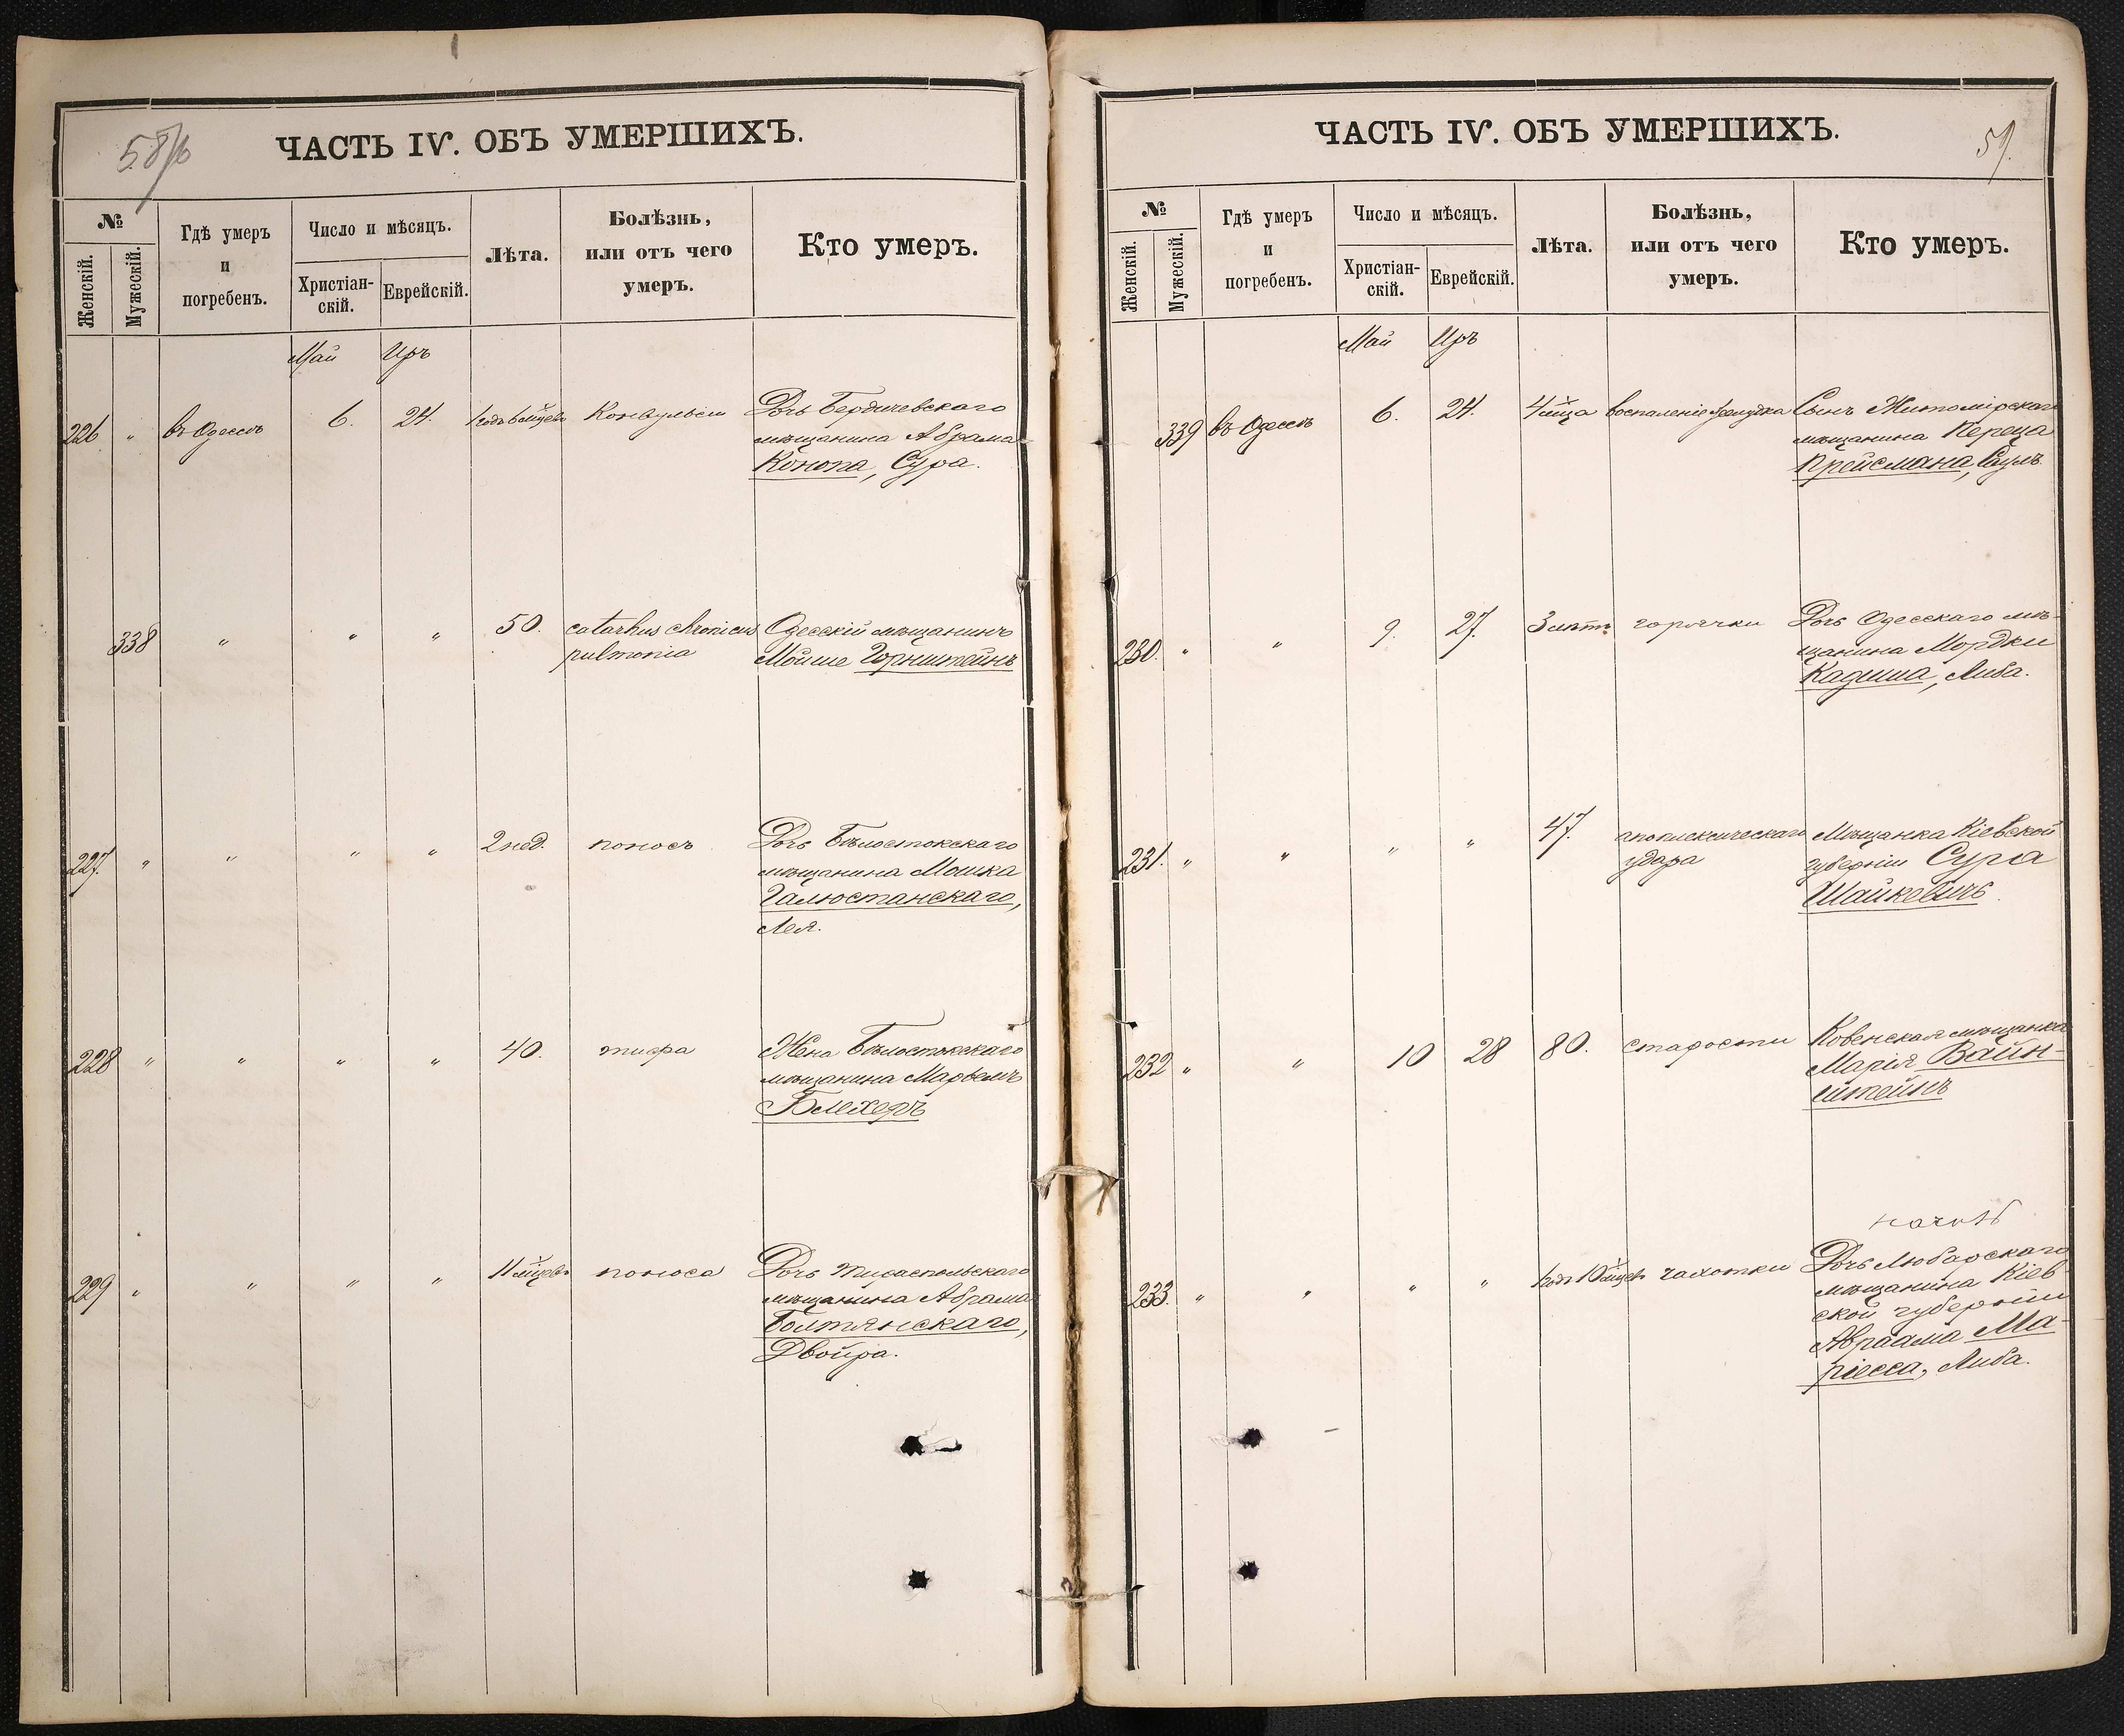 58/б
ЧАСТЬ IV. ОБЪ УМЕРШИХЪ.
№
Женскій.
Мужескій.
Гдѣ умеръ
и
погребенъ.
Число и мѣсяцъ.
Христіан-
скій.
Еврейскій.
Лѣта.
Болѣзнь,
или отъ чего
умеръ.
Кто умеръ.
Май Иръ
226 " въ Одессѣ 6. 24. Конвульсіи Дочь Бердичевскаго
мѣщанина Абрама
Конопа, Сура.
338 " " " 50. catarhus chronicus Одесскій мѣщанинъ
pulmonia Мойше Горнштейнъ
227. " " " " 2 нед. поносъ Дочь Бѣлостокскаго
мѣщанина Мошка
Галюстанскаго,
Лея.
228 " " " " 40. тифа Жена Бѣлостокскаго
мѣщанина
Блехеръ
229 " " " " 11 мѣцевъ поноса Дочь Тираспольскаго
мѣщанина Абрама
Болтянскаго,
Двойра.
59.
ЧАСТЬ IV. ОБЪ УМЕРШИХЪ.
№
Женскій.
Мужескій.
Гдѣ умеръ
и
погребенъ.
Число и мѣсяцъ.
Христіан-
скій.
Еврейскій.
Лѣта.
Болѣзнь,
или отъ чего
умеръ.
Кто умеръ.
Май Иръ
339 въ Одессѣ 6. 24. 4 мѣца воспаленіе желудка Сынъ Житомірскаго
мѣщанина Переца
Прейсмана, Саулъ.
230. " " 9. 27. 3 лѣтъ горячки Дочь Одесскаго мѣ-
щанина Мордки
Кадиша, Либа.
231. " " " " 47. апоплексическаго Мѣщанка Кіевской
удара губерніи Сура
Шайкевичъ.
232 " " 10 28 80. старости Ковенская мѣщанка
Марія Вайн-
штейнъ
233. " " " " чахотки Дочь Любарскаго
мѣщанина Кіев-
ской губерніи
Авраама Ма-
ріесса, Либа.